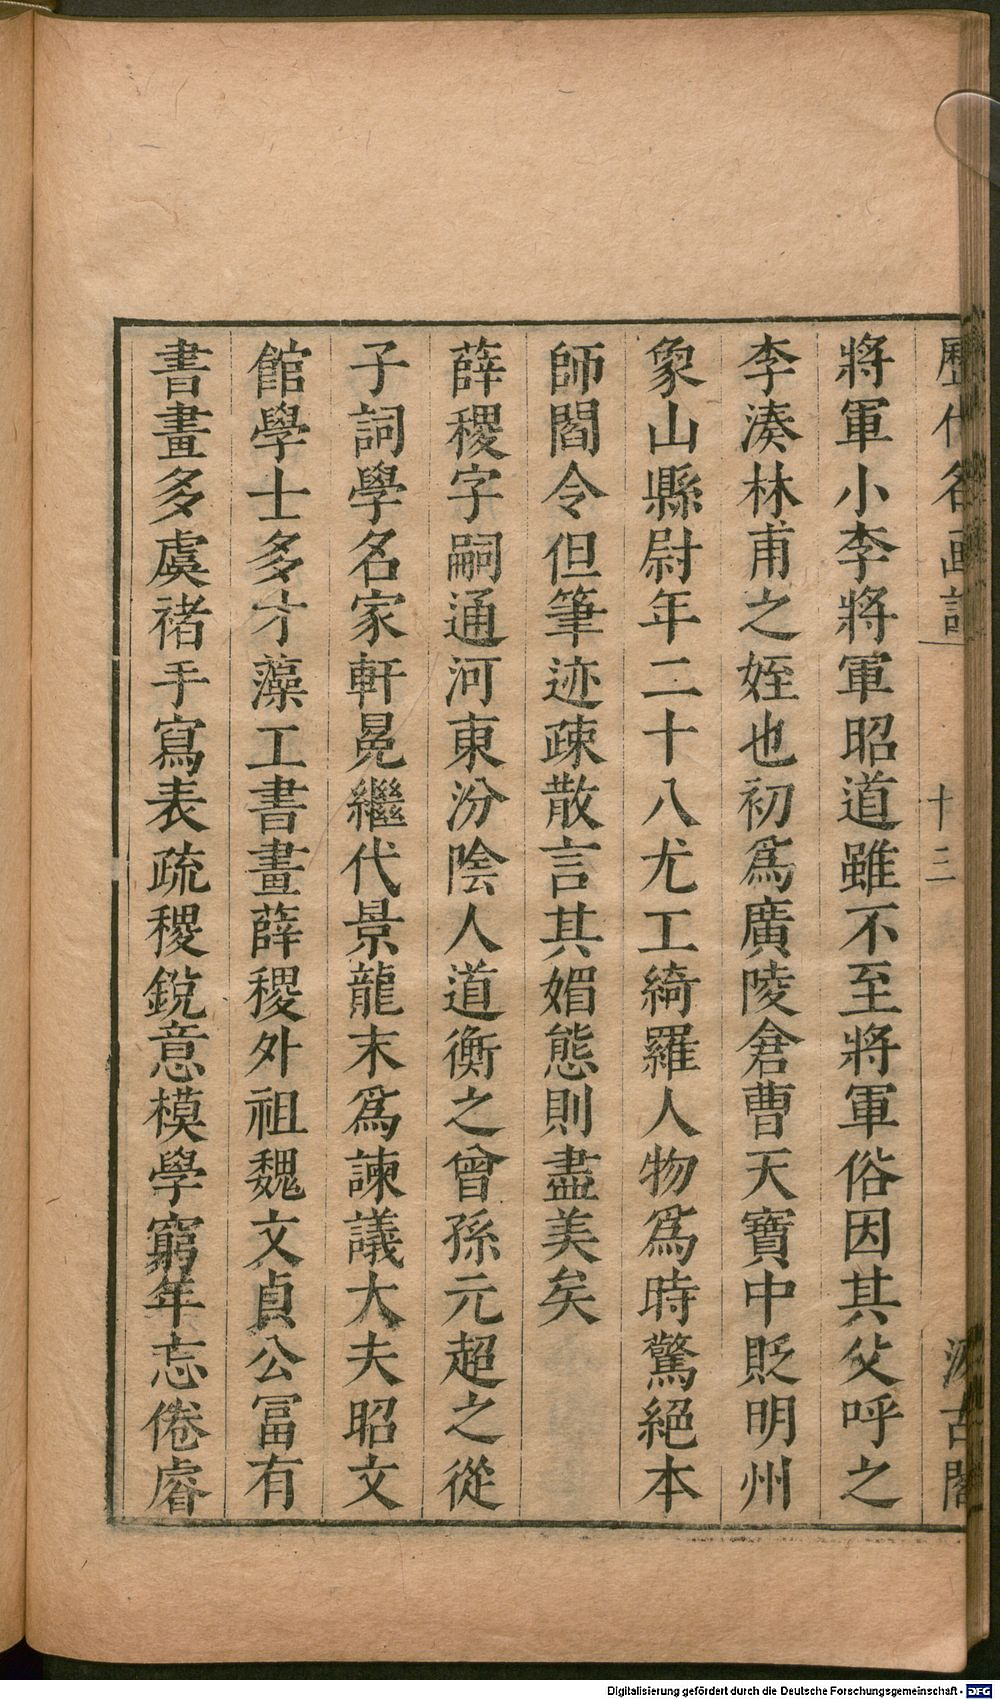 歷代名画記 十三 汲古閣
將軍小李將軍昭道雖不至將軍俗因其父呼之
李湊林甫之姪也初爲廣陵倉曹天寶中貶明州
象山縣尉年二十八尤工綺羅人物爲時驚絕本
師閻令但筆迹疎散言其媚態則盡美矣
薛稷字嗣通河東汾陰人道衡之曾孫元超之從
子詞學名家軒冕繼代景龍末爲諫議大夫昭文
館學士多才藻工書畫薛稷外祖魏文貞公冨有
書畫多虞褚手寫表疏稷銳意模學窮年忘倦睿
Digitalisierung gefördert durch die Deutsche Forschungsgemeinschaft - DFG